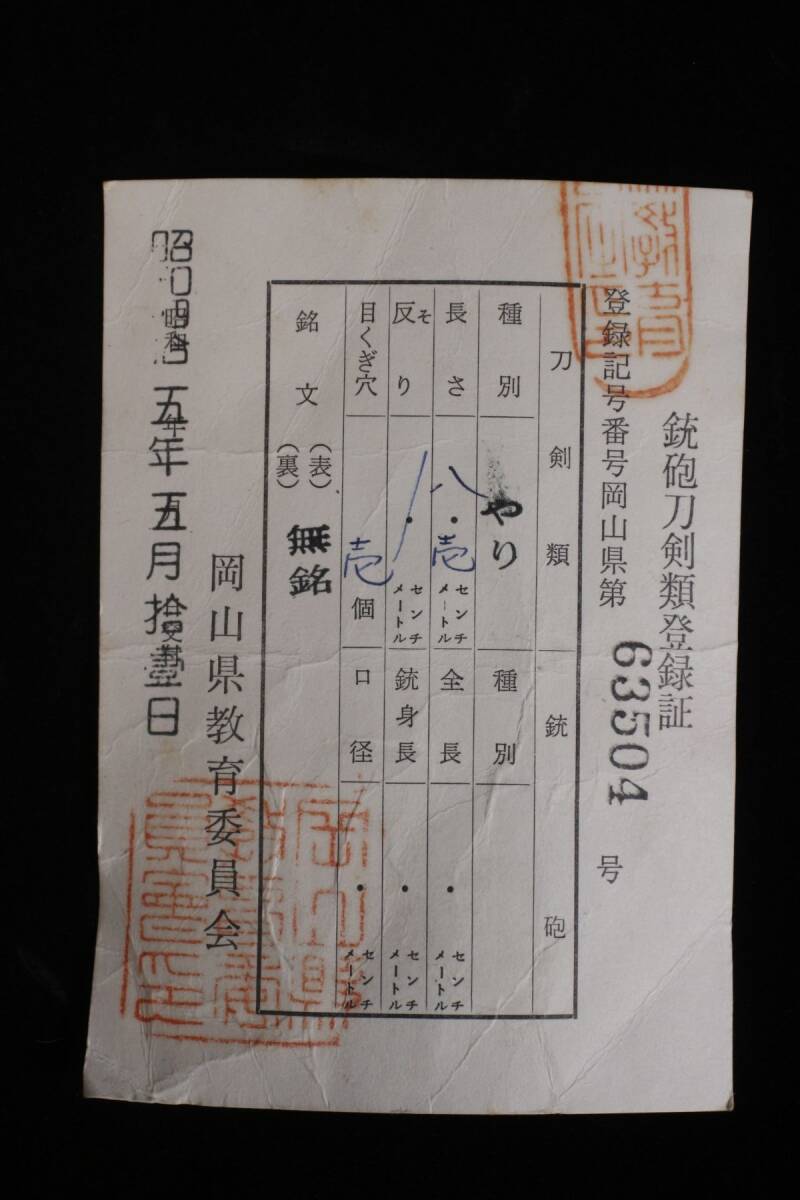 銃砲刀剣類登録証
登録記号番号岡山県第 63504 号
刀剣類
種別 やり
長さ 八・壱 センチメートル
反り そ ・ センチメートル
目くぎ穴 壱 個
銘文 (表) (裏) 無銘
銃砲
種別
全長 ・ センチメートル
銃身長 ・ センチメートル
口径 ・ センチメートル
岡山県教育委員会
五年五月拾壹日